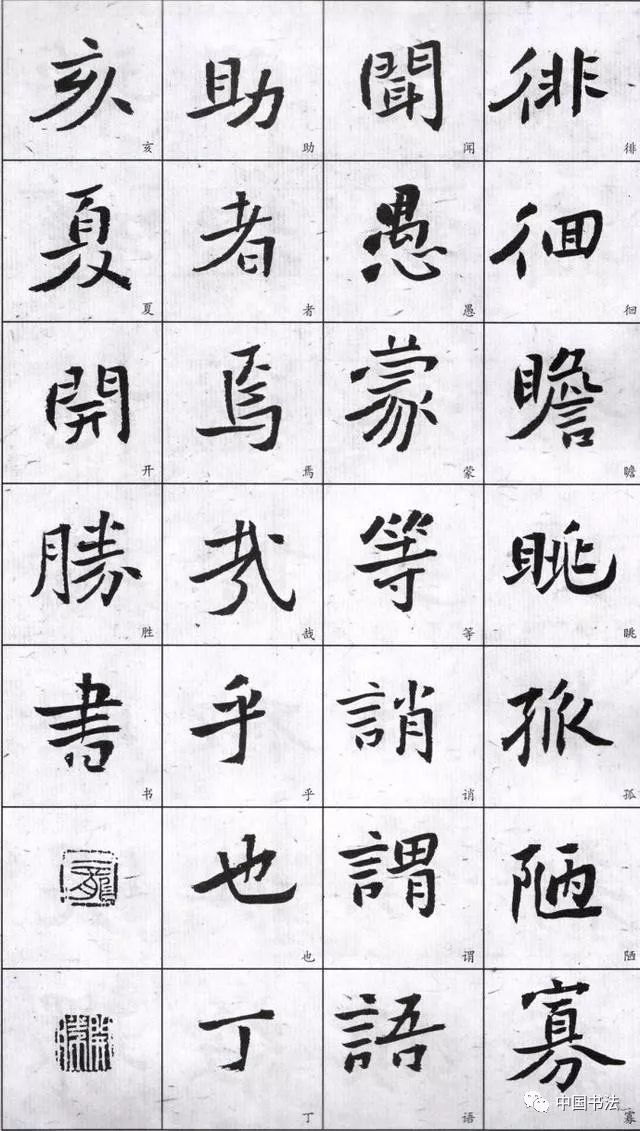 徘徊瞻眺孤陋寡
徘徊瞻眺孤陋寡
聞愚蒙等誚謂語
闻愚蒙等诮谓语
助者焉哉乎也丁
助者焉哉乎也丁
亥夏開勝書
亥夏开胜书
中国书法